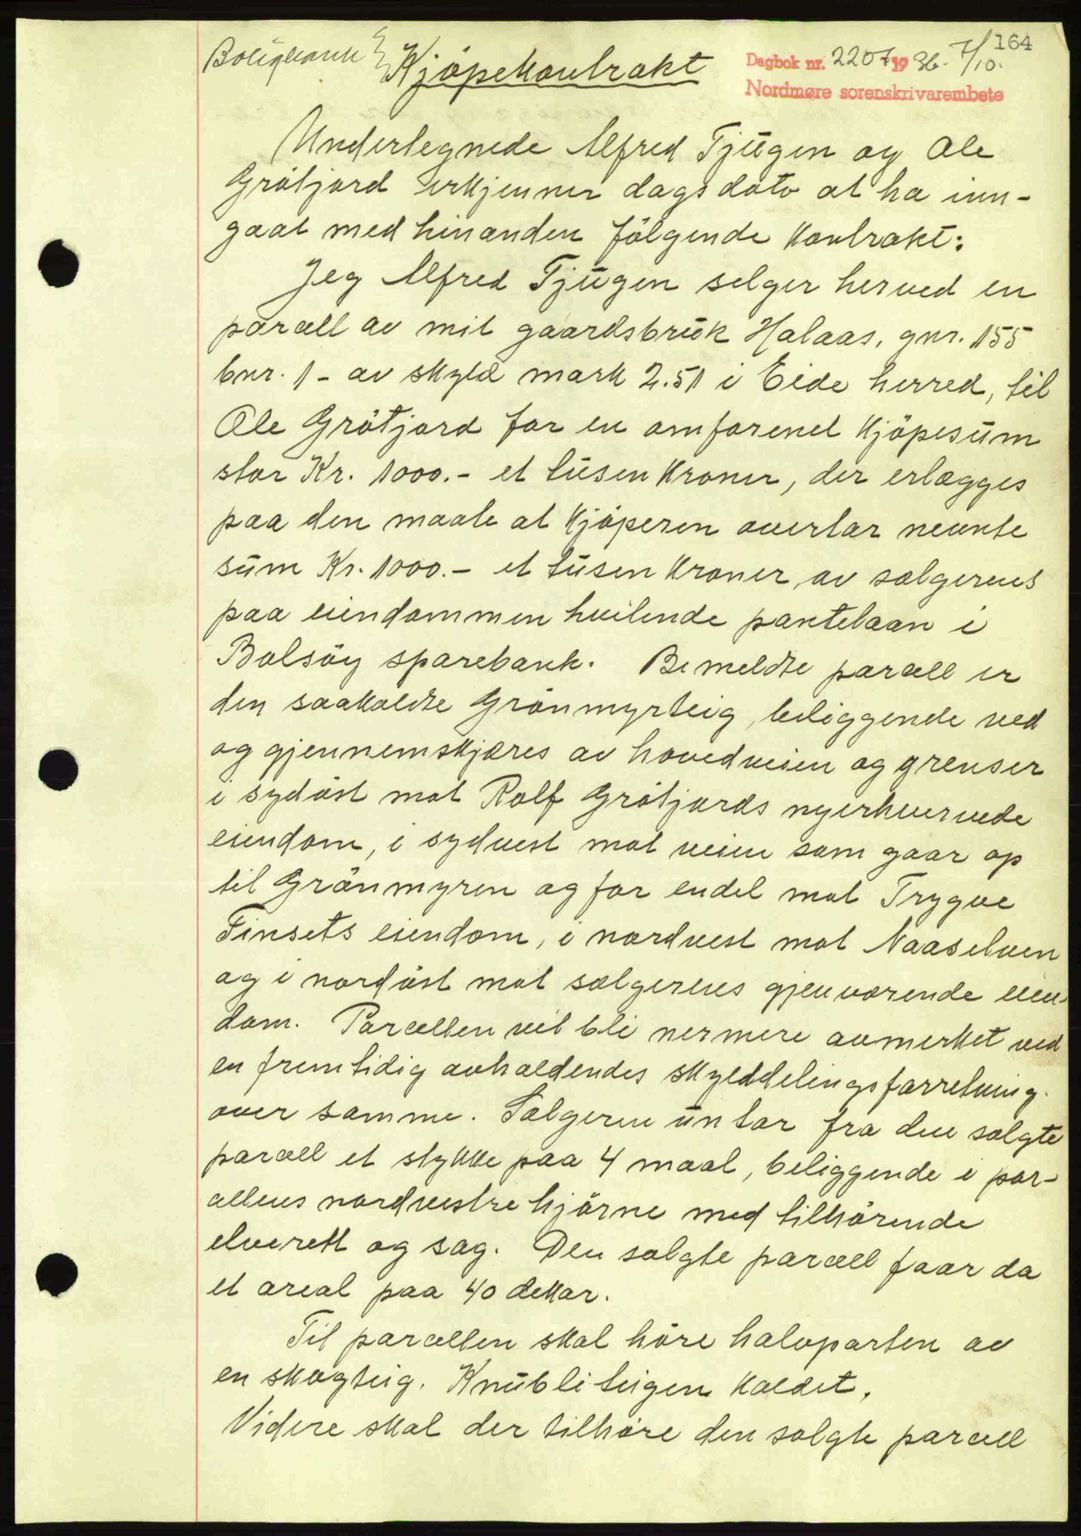 164
Boligbank Kjöpekontrakt
Dagbok nr. 2207 1936. 7/10.
Nordmøre sorenskrivarembete
Underlegnede Alfred Tjugen og Ole
Grötjord erkjenner dags dato at ha inn-
gaat med hinanden fölgende kontrakt:
Jeg Alfred Tjugen selger herved en
parcell av mit gaardsbruk Halaas, gnr. 155
bnr. 1 - av skyld mark 2.51 i Eide herred, til
Ole Grötjord for en omforenet kjöpesum
stor Kr. 1000.- et tusen kroner, der erlægges
paa den maate at kjöperen overtar nevnte
sum Kr. 1000.- et tusen kroner, av sælgerens
paa eiendommen hvilende pantelaan i
Bolsöy sparebank. Bemeldte parcell er
den saakaldte Grönmyrteig, beliggende ved
og gjennemskjæres av hovedveien og grenser
i sydöst mot Rolf Grötjords nyerhvervede
eiendom, i sydvest mot veien som gaar op
til Grönmyren og for endel mot Trygve
Finsets eiendom, i nordvest mot Naaselven
og i nordöst mot sælgerens gjenværende eien-
dom. Parcellen vil bli nermere avmerket ved
en fremtidig avholdendes skylddelingsforretning
over samme. Sælgeren untar fra den solgte
parcell et stykke paa 4 maal, beliggende i par-
cellens nordvestre hjörne med tilhörende
elverett og sag. Den solgte parcell faar da
et areal paa 40 dekar.
Til parcellen skal höre halvparten av
en skogteig. Knubliteigen kaldet.
Videre skal der tilhöre den solgte parcell